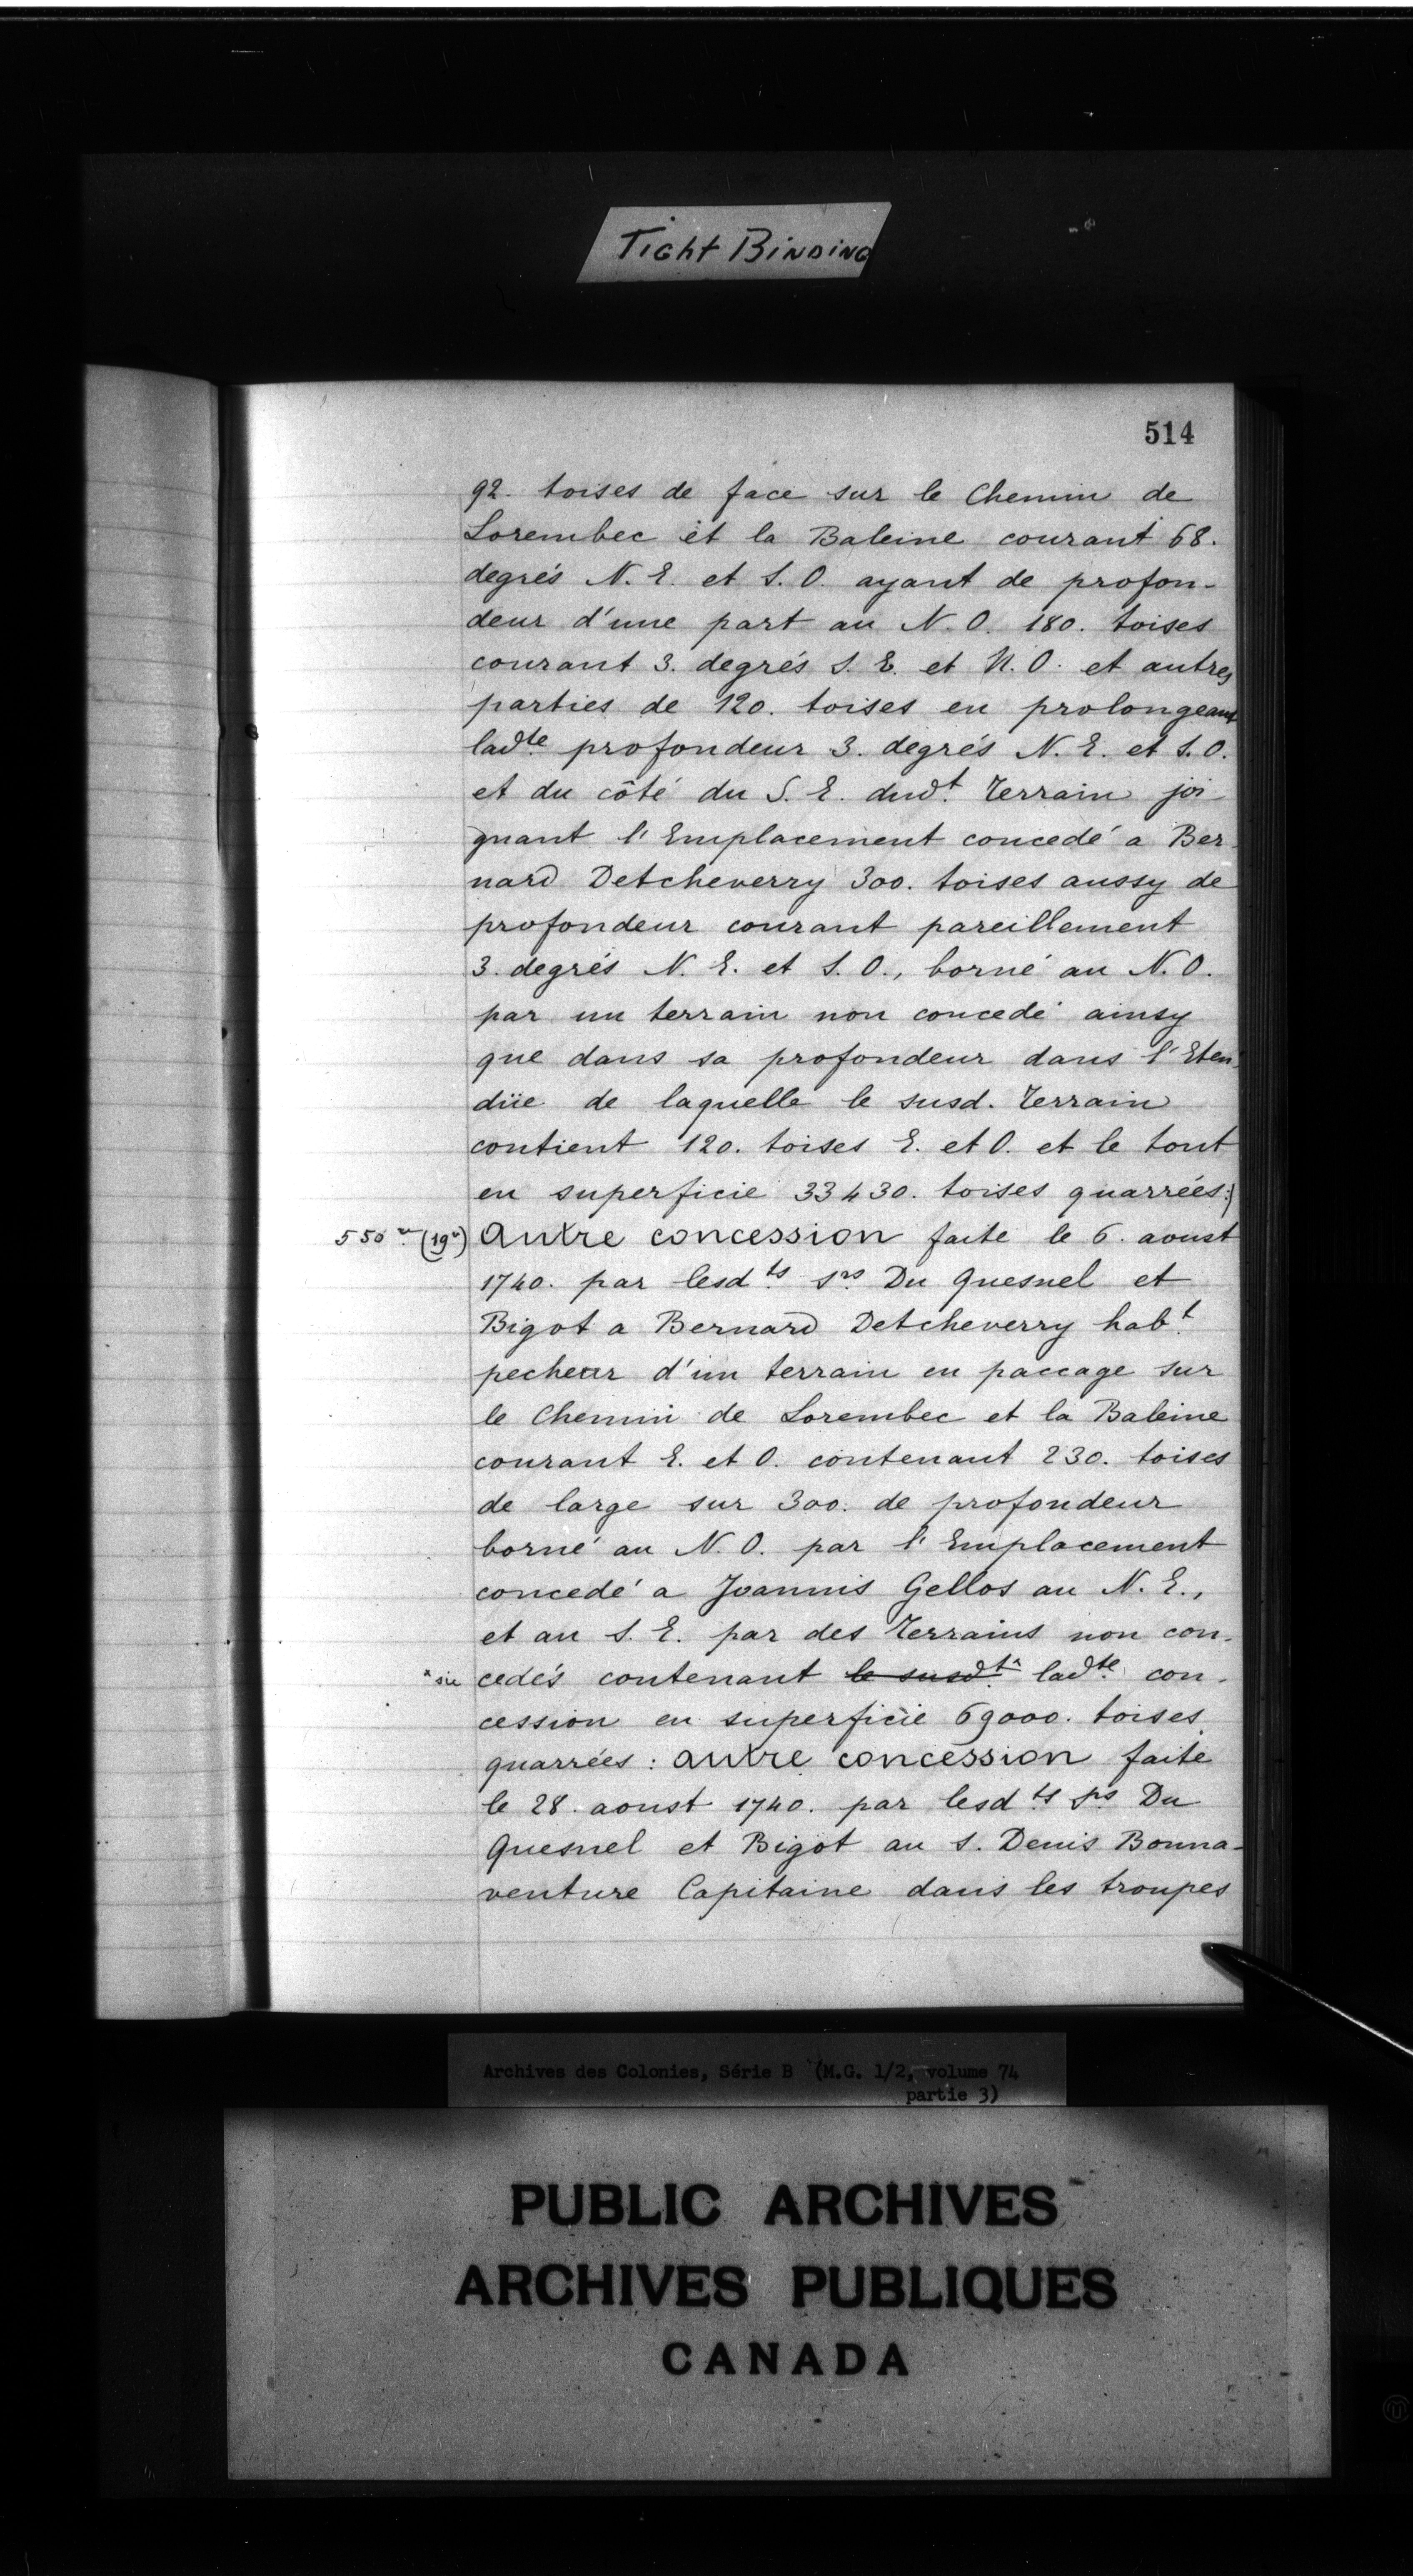 Tight Binding
514
92. toises de face sur le Chemin de
Lorembec et la Baleine courant 68.
degrés N. E. et S. O. ayant de profon-
deur d'une part au N. O. 180. toises
courant 3. degrés S. E. et N. O. et autres
parties de 120. toises en prolongeant
ladte. profondeur 3. degrés N. E. et S. O.
et du côté du S. E. dudt. Terrain joi
gnant l'Emplacement concedé a Ber
nard Detcheverry 300. toises aussy de
profondeur courant pareillement
3. degrés N. E. et S. O., borné au N. O.
par un terrain non concedé ainsy
que dans sa profondeur dans l'Eten
düe de laquelle le susd. Terrain
contient 120. toises E. et O. et le tout
en superficie 33430. toises quarrées:)
550 (19) Autre concession faite le 6. aoust
1740. par lesdts. srs. Du Quesnel et
Bigot a Bernard Detcheverry habt.
pecheur d'un terrain en paccage sur
le Chemin de Lorembec et la Baleine
courant E. et O. contenant 230. toises
de large sur 300. de profondeur
borné au N. O. par l'Emplacement
concedé a Joannis Gellos au N. E.,
et au S. E. par des Terrains non con-
x sic cedés contenant le susdt. x ladte. con-
cession en superficie 69000. toises
quarrées: autre concession faite
le 28. aoust 1740. par lesdts. srs. Du
Quesnel et Bigot au S. Denis Bonna-
venture Capitaine dans les troupes
Archives des Colonies, Série B (M.G. 1/2, volume 74
partie 3)
PUBLIC ARCHIVES
ARCHIVES PUBLIQUES
CANADA